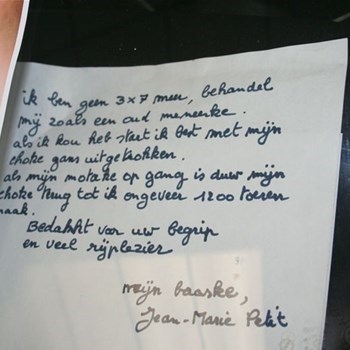 ik ben geen 3x7 meer, behandel
mij zoals een oud meneerke.
als ik kou heb start ik best met mijn
choke gans uitgetrokken.
als mijn motorke op gang is duw mijn
choke terug tot ik ongeveer 1200 toeren
maak.
Bedankt voor uw begrip
en veel rijplezier
mijn baaske,
Jean-Marie Petit